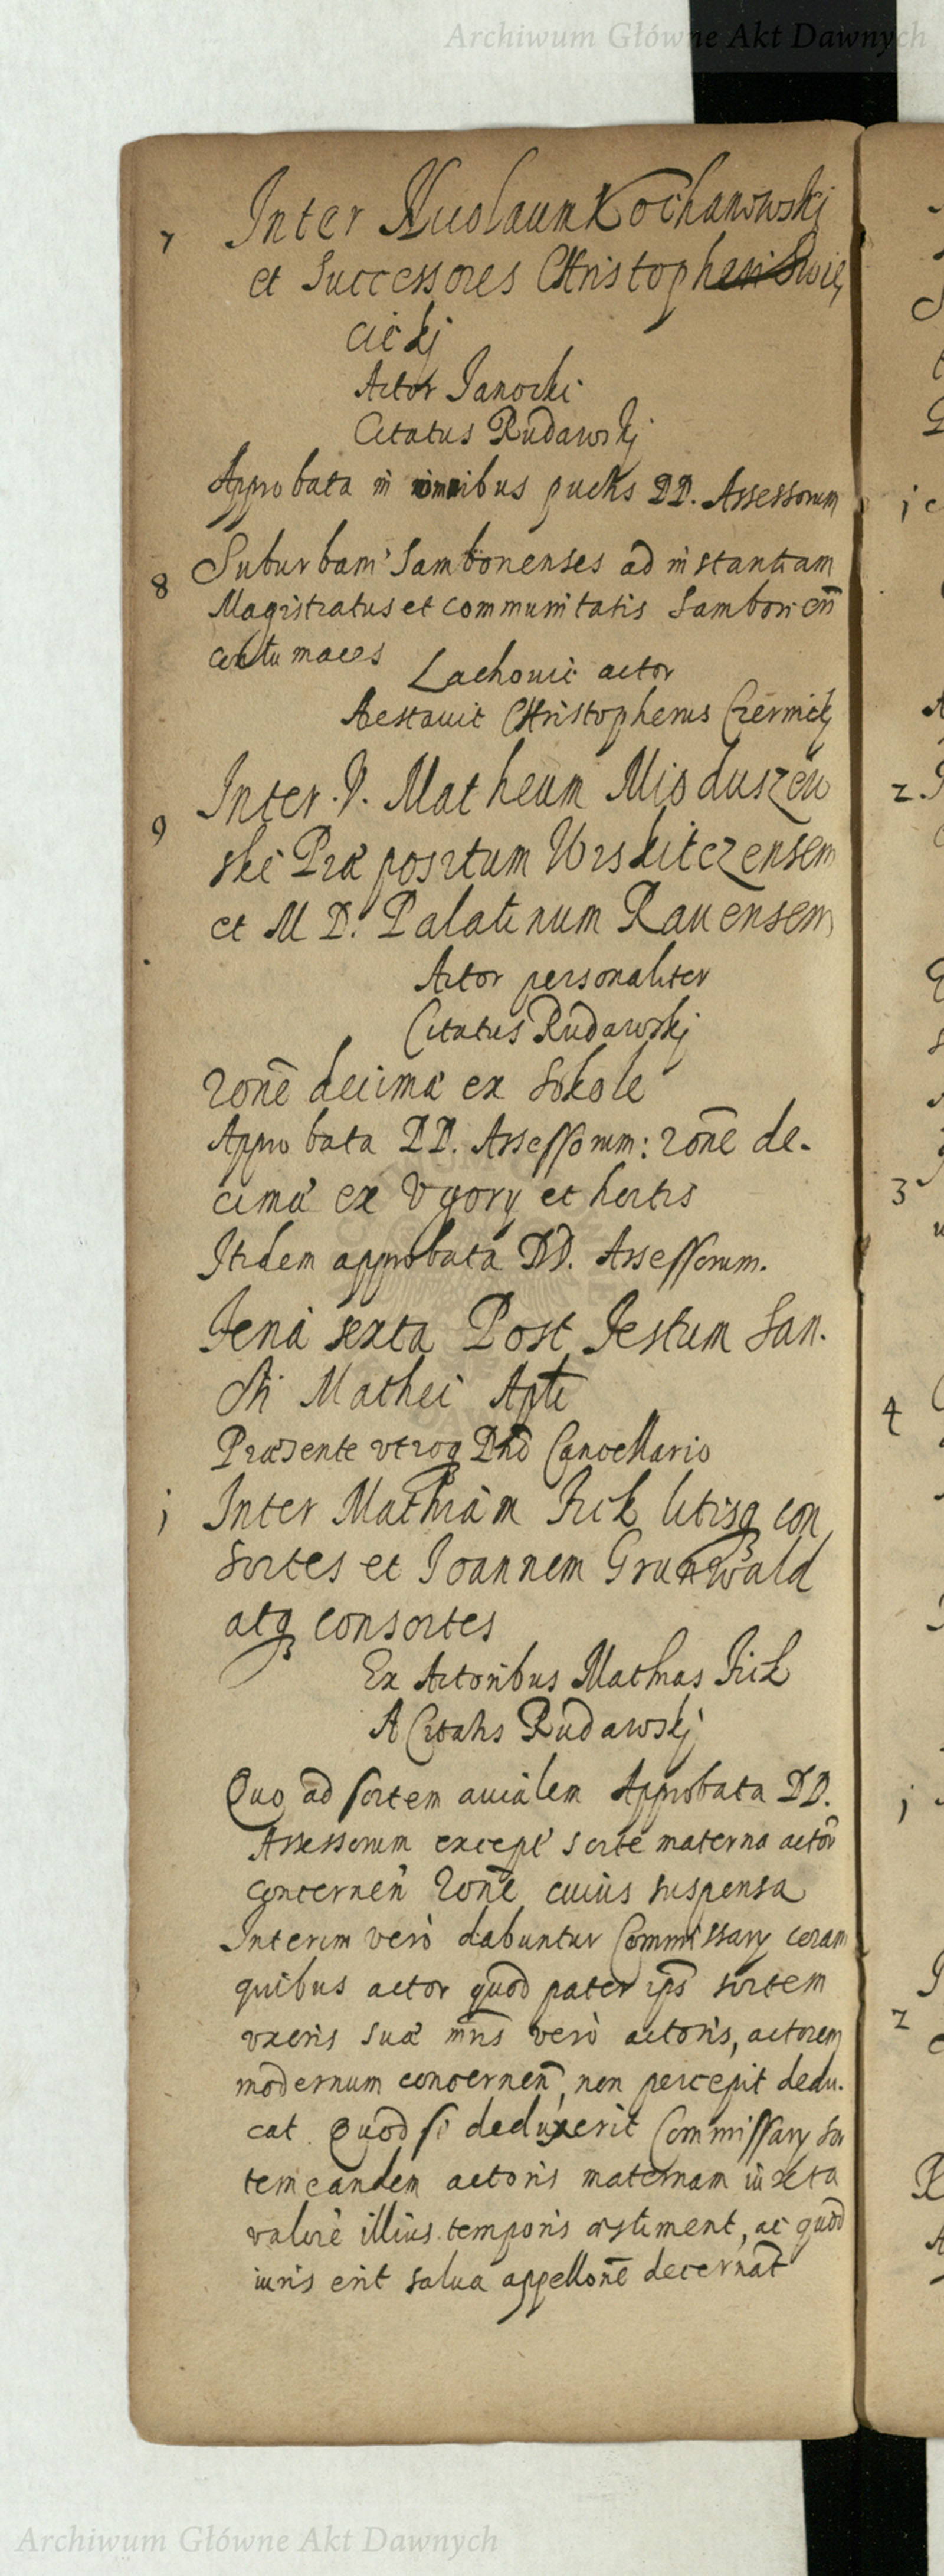 Archiwum Główne Akt Dawnych
7 Inter Nicolaum Kochanowskj
et Successores Christopheri Swię
cickj
Actor Janocki
Citatus Rudawskj
Approbata in omnibus puctis DD. Assessorum
8 Suburbani Samborienses ad instantiam
Magistratus et communitatis Samborien̄
contumaces
Lachouic actor
Aestauit Christopherus Czernickj
9 Inter V. Matheum Misduszew
ski Præpositum Urskitczensem
et M D. Palatinum Rauensem
Actor personaliter
Citatus Rudawskj
Rōne decimæ ex Sokole
Approbata DD. Assessorum: Rōne de-
cimæ ex Vgory et hortis
Itidem approbata DD. Assessorum.
Feriâ sexta Post Festum San-
cti Mathei Apłi
Præsente vtroq Dnō Cancellario
j Inter Mathiam Frik litisq con
sortes et Joannem Grunwald
atq consortes
Ex Actoribus Mathias Frik
A Citatis Rudawskj
Quo ad sortem auialem Approbata DD.
Assessorum except sorte materna actōr
concernen̄ Rōne cuius suspensa
Interim verò dabuntur Commissary coram
quibus actor quod pater ips̄ sortem
vxoris suæ mr̄is verò actoris, actorem
modernum concernen̄, non percepit dedu-
cat. Quod si deduxerit Commissary sor
tem eandem actoris maternam iuxta
valorē illius temporis æstiment, ac quod
iuris erit salua appellōne decernāt
Archiwum Główne Akt Dawnych